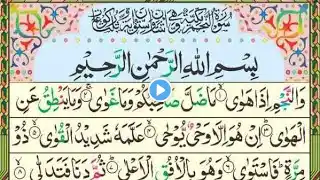 بِسْمِ اللهِ الرَّحْمٰنِ الرَّحِيْمِ
وَالنَّجْمِ اِذَا هَوٰى ۙ۱ مَا ضَلَّ صَاحِبُكُمْ وَمَا غَوٰى ۚ۲ وَمَا يَنْطِقُ عَنِ
الْهَوٰى ؕ۳ اِنْ هُوَ اِلَّا وَحْيٌ يُّوْحٰى ۙ۴ عَلَّمَهٗ شَدِيْدُ الْقُوٰى ۙ۵ ذُوْ
مِرَّةٍ ؕ فَاسْتَوٰى ۙ۶ وَهُوَ بِالْاُفُقِ الْاَعْلٰى ؕ۷ ثُمَّ دَنَا فَتَدَلّٰى ۙ۸